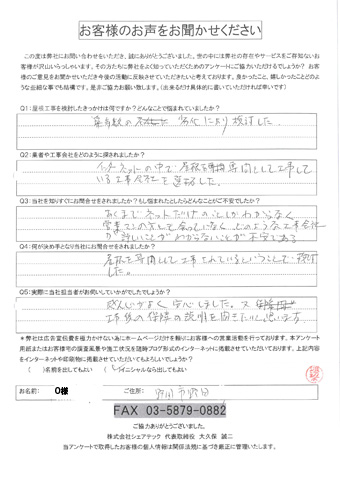 お客様のお声をお聞かせください
この度は弊社にお問い合わせをいただき、誠にありがとうございました。世の中には弊社の存在やサービスをご存知ないお
客様が沢山いらっしゃいます。その方たちに弊社をよく知っていただくためのアンケートにご協力いただけるでしょうか? お客
様のご意見をお聞かせいただき今後の活動に反映させていきたいと考えております。良かったこと、嬉しかったことどのよ
うな些細な事でも結構です。是非ご協力お願い致します。(出来るだけ具体的に書いていただければ幸いです)
Q1:屋根工事を検討したきっかけは何ですか?どんなことで悩まれていましたか?
劣化により検討した。
Q2:業者や工事会社をどのように探されましたか?
インターネットの中で屋根を専門として工事して
いる工事会社を選択した。
Q3:当社を知りすぐにお問合せをされましたか?もし悩まれたとしたらどんなことがご不安でしたか?
あくまでネットだけの わからなく
営業マンの方とも会っていなく どのような工事会社
か詳しいことがわからないことが不安である
Q4:何が決め手となり当社にお問合せをされましたか?
屋根を専門として工事されているということで 検討
した。
Q5:実際に当社担当者がお伺いしていかがでしたでしょうか?
感じがよく 安心しました。又
工事後の保障の説明を聞きたいと思います
*弊社は広告宣伝費を極力かけない為にホームページだけを頼ってお客様への営業活動を行っております。本アンケート
用紙またはお客様宅の調査風景や施工状況を随時ブログ形式のインターネットに掲載させていただいております。上記内容
をインターネットや印刷物に掲載させていただいてもよろしいでしょうか?
( )名前を出してもよい (✓)イニシャルなら出してもよい
お名前: O様 ご住所: 野田市
FAX 03-5879-0882
ご協力ありがとうございました。
株式会社シェアテック 代表取締役 大久保 誠二
当アンケートで取得したお客様の個人情報は関係法規に基づき厳正に管理いたします。